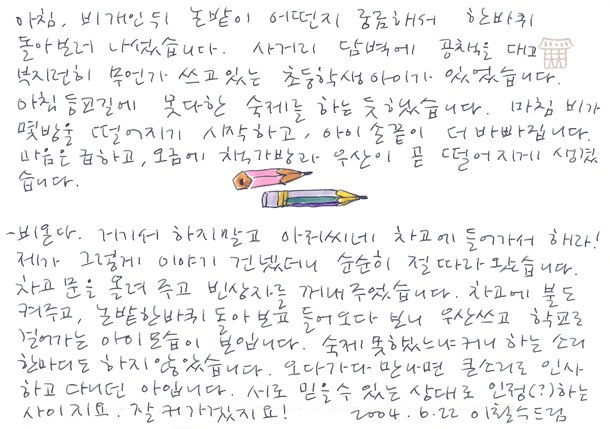 아침, 비개인 뒤 논밭이 어떤지 궁금해서 한바퀴
돌아보러 나섰습니다. 사거리 담벽에 공책을 대고
부지런히 무언가 쓰고 있는 초등학생 아이가 있었습니다.
아침 등교길에 못다한 숙제를 하는 듯 했습니다. 마침 비가
몇방울 떨어지기 시작하고, 아이 손끝이 더 바빠집니다.
마음은 급하고, 오금에 책가방과 우산이 곧 떨어지게 생겼
습니다.
-비온다. 거기서 하지말고 아저씨네 차고에 들어가서 해라!
제가 그렇게 이야기 건넸더니 순순히 절 따라 오습니다.
차고 문을 올려 주고 빈상자를 꺼내 주었습니다. 차고에 불도
켜주고, 논밭 한바퀴 돌아 보고 들어오다 보니 우산쓰고 학교로
걸어가는 아이 모습이 보입니다. 숙제 못했느냐커니 하는 소리
한마디도 하지 않았습니다. 오다가다 만나면 큰소리로 인사
하고 다니던 아입니다. 서로 믿을 수 있는 상대로 인정(?)하는
사이지요. 잘 커가겠지요! 2004. 6. 22 이철수드림